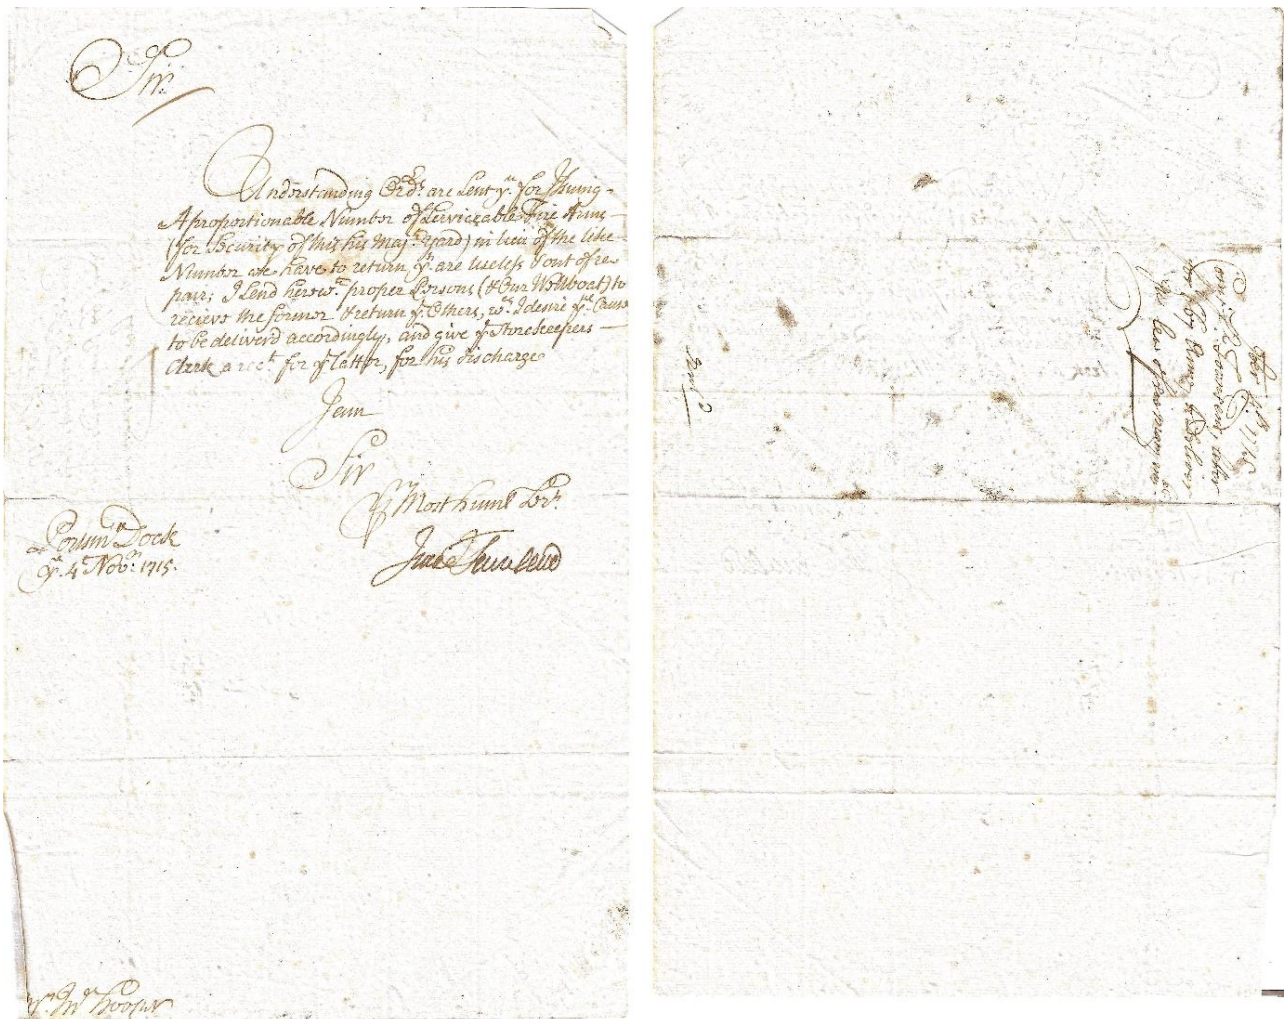 Sir.
Understanding Ordrs. are Sent yu. for Issuing
A proportionable Number of Serviceable Fire Arms
(for Security of this his Majts. Yard) in lieu of the like
Number we have to return yt. are useless & out of re
pair; I Send herewth. proper Persons (& Our Wellboat) to
recieve the former & return ye. Others, wch. I desire yu. Cause
to be deliverd accordingly, and give ye Storekeepers
Clerk a rect. for ye latter, for his discharge
I am
Sir
Yr. Most humle Servt.
Isaac Townsend
Portsmo. Dock
ye. 4th. Novr. 1715.
Mr. Hooper
Novr. 4th. 1715
Comr. Townsend,
for Arms to be deliver